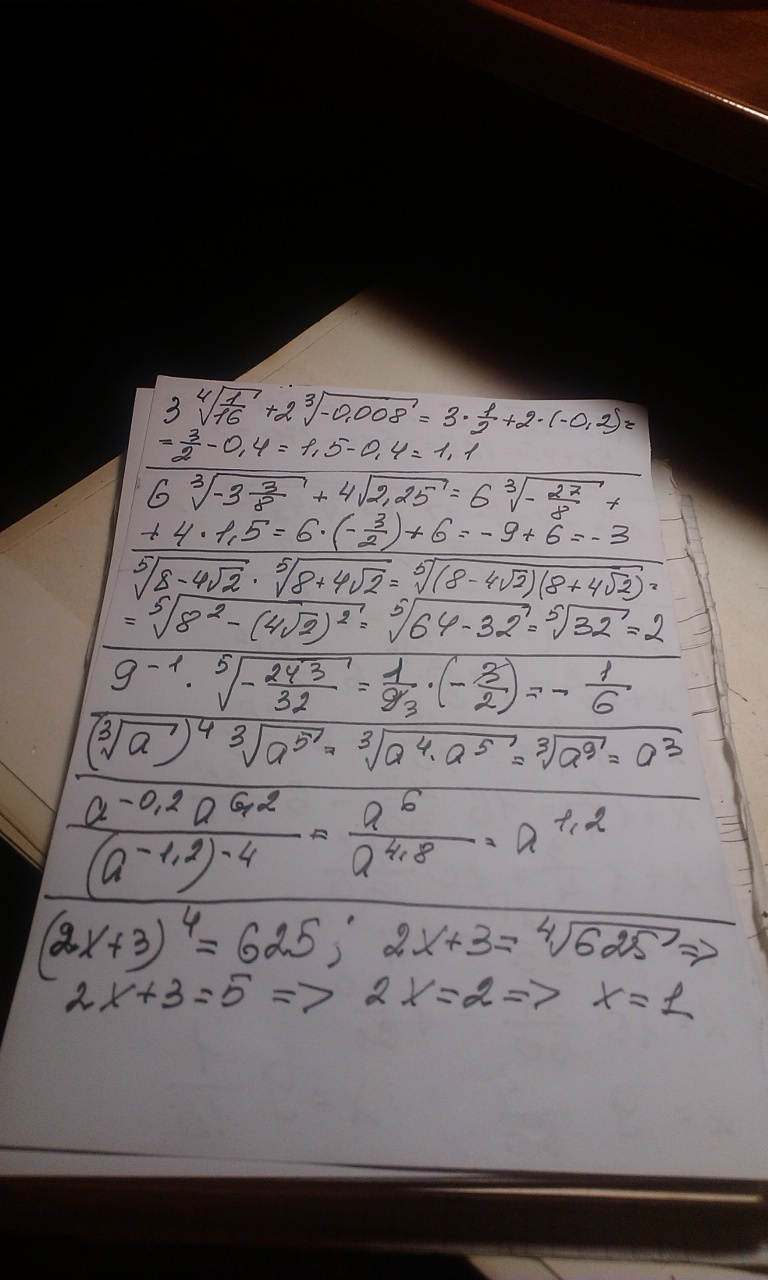 3 ⁴√(1/16) + 2 ³√(-0,008) = 3 · 1/2 + 2 · (-0,2) =
= 3/2 - 0,4 = 1,5 - 0,4 = 1,1
6 ³√(-3 3/8) + 4√2,25 = 6 ³√(-27/8) +
+ 4 · 1,5 = 6 · (-3/2) + 6 = -9 + 6 = -3
⁵√(8-4√2) · ⁵√(8+4√2) = ⁵√((8-4√2)(8+4√2)) =
= ⁵√(8² - (4√2)²) = ⁵√(64-32) = ⁵√32 = 2
9⁻¹ · ⁵√(-243/32) = 1/9₃ · (-3/2) = - 1/6
(³√a)⁴ ³√a⁵ = ³√(a⁴·a⁵) = ³√a⁹ = a³
(a^(-0,2) a^(6,2))/((a^(-1,2))^(-4)) = a^6/a^(4,8) = a^(1,2)
(2x+3)⁴ = 625; 2x+3 = ⁴√625 =>
2x+3=5 => 2x=2 => x=1